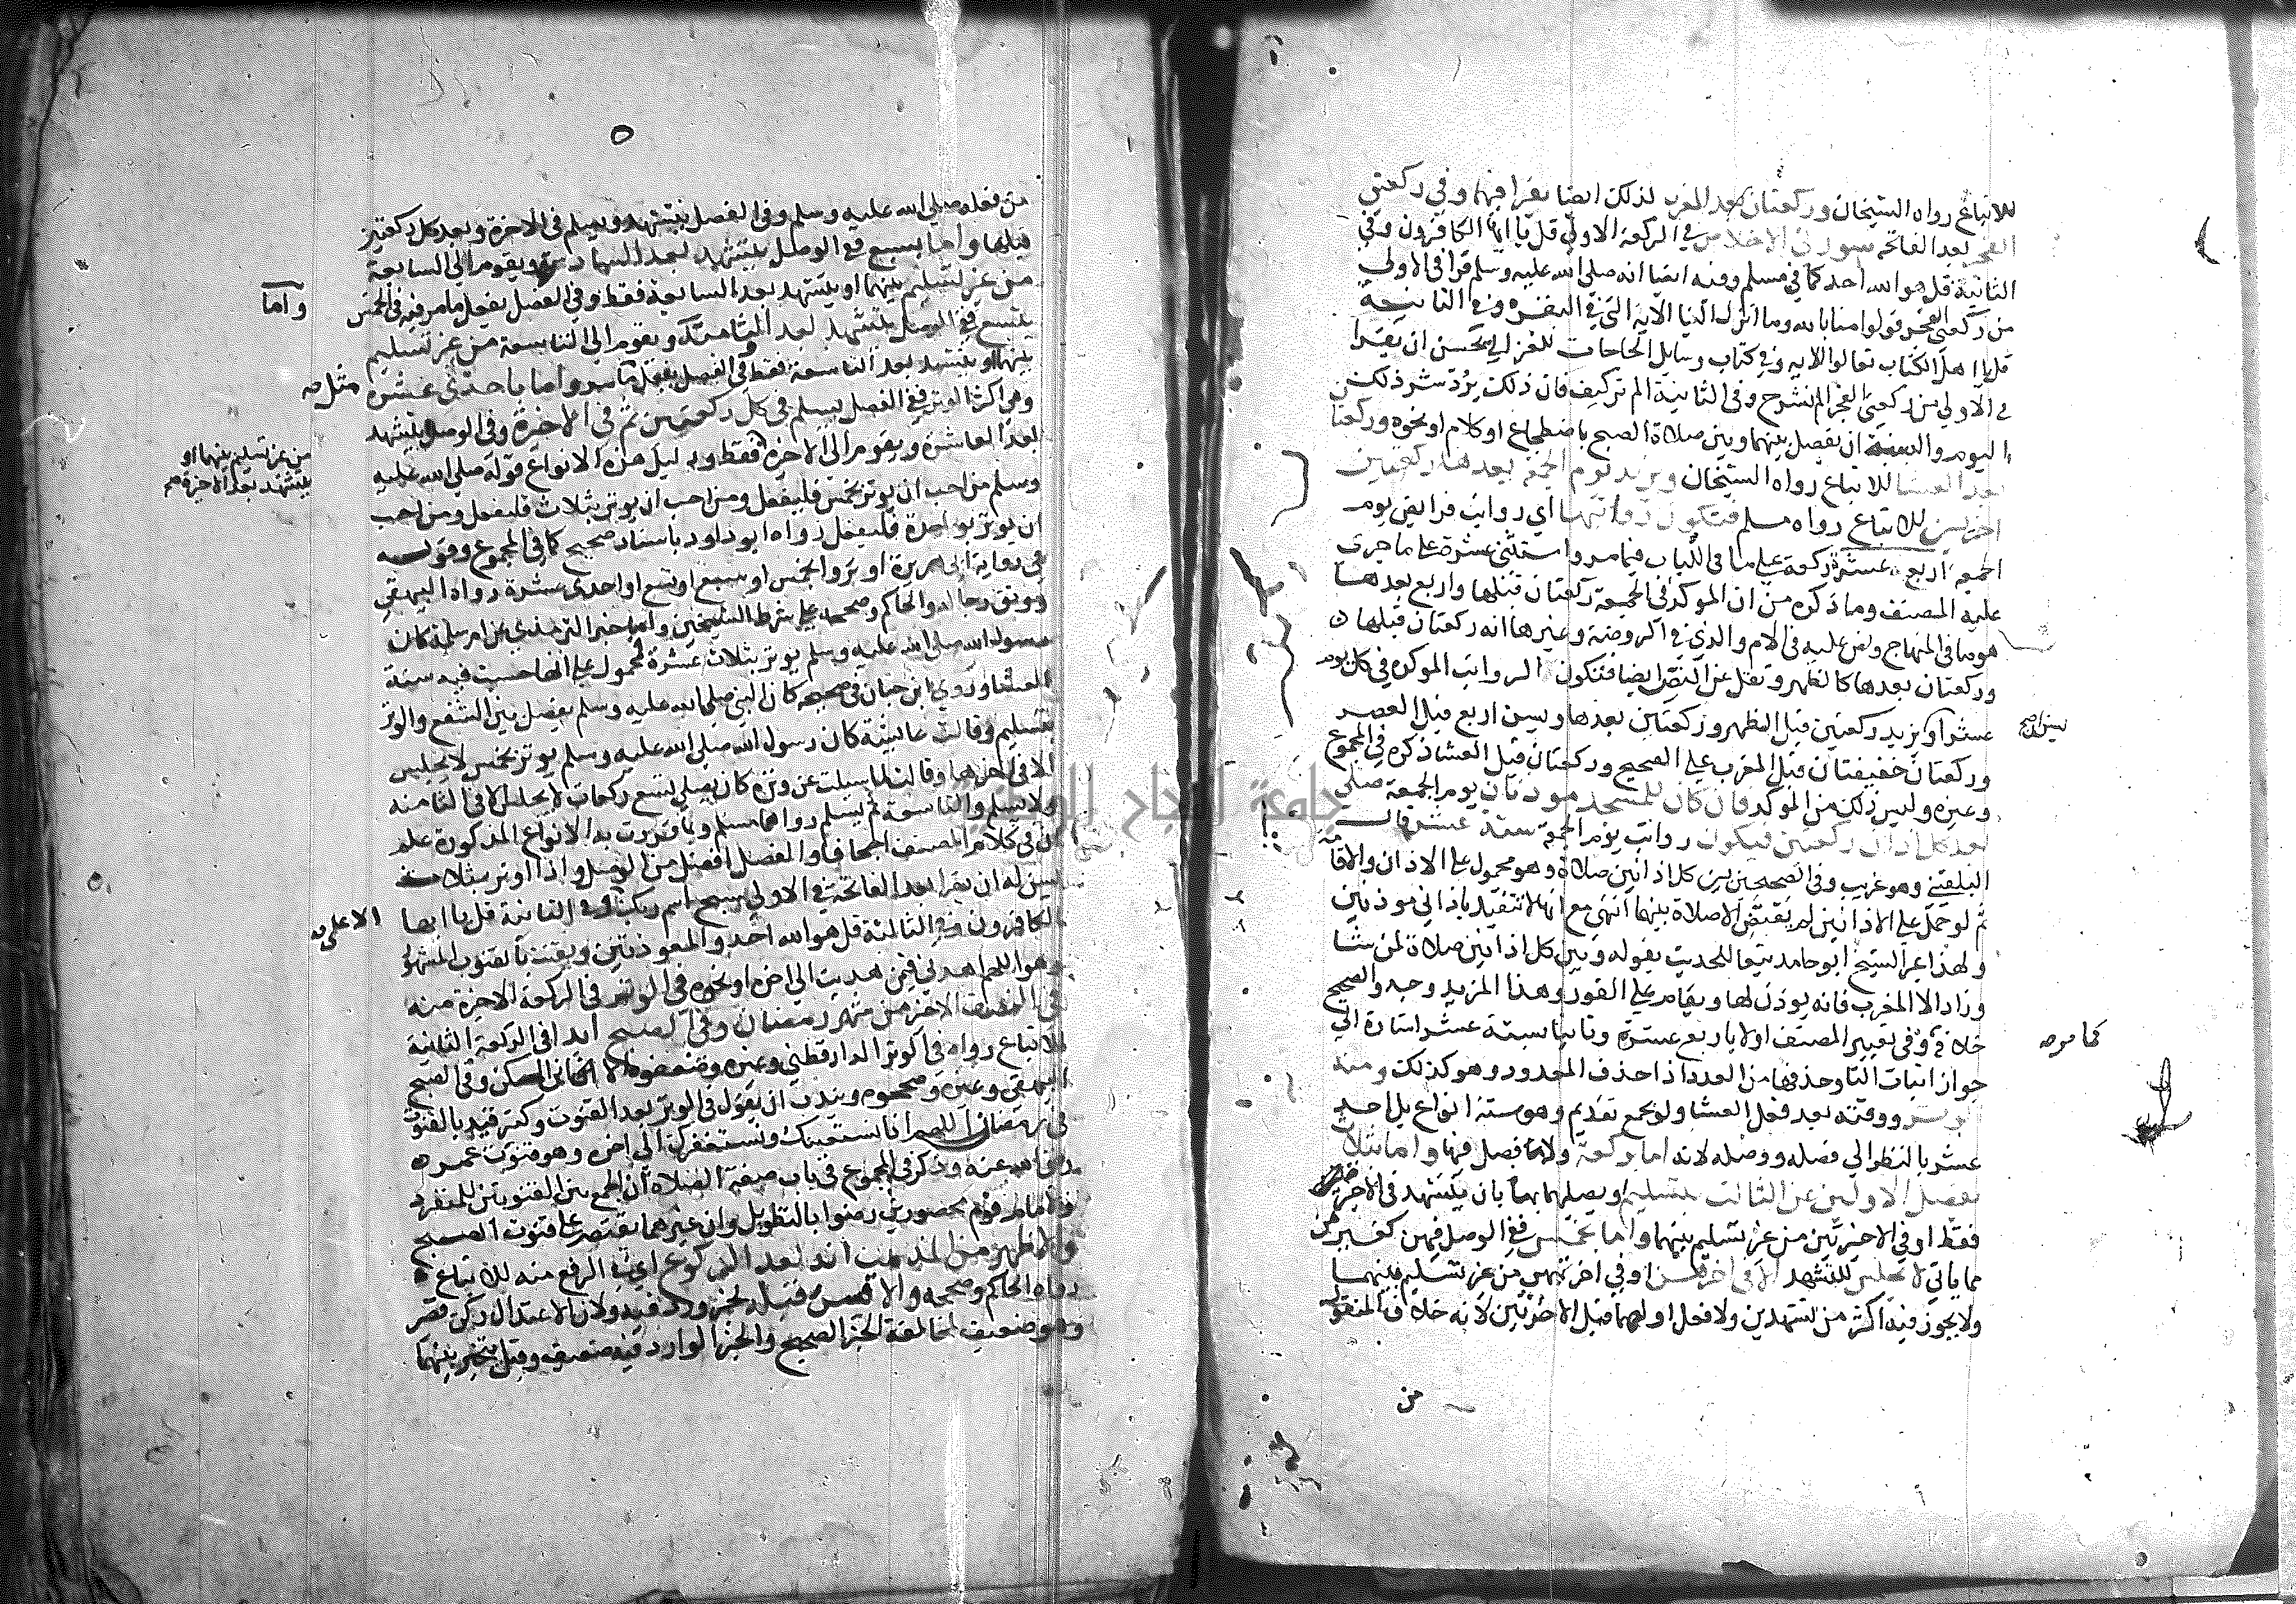 للاتباع رواه الشيخان وركعتان بعد المغرب لذلك ايضا يقرا فيهما وفي ركعتي
الفجر بعد الفاتحة سورتي الاخلاص في الركعة الاولى قل يا ايها الكافرون وفي
الثانية قل هو الله احد كما في مسلم وفيه ايضا انه صلى الله عليه وسلم قرا في الاولى
من ركعتي الفجر قولوا امنا بالله وما انزل الينا الاية التي في البقرة وفي الثانية
قل يا اهل الكتاب تعالوا الاية وفي كتاب وسايل الحاجات للغزالي يحسن ان يقرا
في الاولى من ركعتي الفجر الم نشرح وفي الثانية الم تر كيف فان ذلك يرد شر ذلك
اليوم والسنة ان يفصل بينهما وبين صلاة الصبح باضطجاع او كلام او نحوه وركعتا
بعد العشا للاتباع رواه الشيخان ويزيد يوم الجمعة بعدها ركعتين
اخراتين للاتباع رواه مسلم فتكون رواتبها اي رواتب فرايض يوم
الجمعة اربع عشرة ركعة على ما في اللباب فيما مر واستثنى عشرة على ما جرى
عليه المصنف وما ذكره من ان الموكد في الجمعة ركعتان قبلها واربع بعدها
هو ما في المنهاج ونص عليه في الام والذي في الروضة وغيرها انه ركعتان قبلها
وركعتان بعدها كالظهر ونقل عن النص ايضا فتكون الرواتب الموكدة في كل يوم
عشرا ويزيد ركعتين قبل الظهر وركعتين بعدها ويسن اربع قبل العصر
وركعتان خفيفتان قبل المغرب على الصحيح وركعتان قبل العشا ذكره في المجموع
وغيره وليس ذلك من الموكد فان كان للمسجد موذنان يوم الجمعة صلى
بعد كل اذان ركعتين فيكون رواتب يوم الجمعة ستة عشر قال
البلقيني وهو غريب وفي الصحيحين بين كل اذانين صلاة وهو محمول على الاذان والاقامة
ثم لو حمل على الاذانين لم يقتض الا صلاة بينهما انتهى مع انها لا تتقيد باذاني موذنين
ولهذا عبر الشيخ ابو حامد تبعا للحديث بقوله وبين كل اذانين صلاة لمن شا
وزاد الا المغرب فانه يوذن لها ويقام على الفور وهذا المزيد وجه والصحيح
خلافه وفي تعبير المصنف اولا باربع عشرة وثانيا بستة عشر اشارة الى
جواز اثبات التا وحذفها من العدد اذا حذف المعدود وهو كذلك ومنه
الوتر ووقته بعد فعل العشا ولو بجمع تقديم وهو ستة انواع بل احد
عشر بالنظر الى فصله ووصله لانه اما بركعة ولا فصل فيها واما بثلاث
يفصل الاولين عن الثالث بتسليم او يصلها بها بان يتشهد في الاخيرة
فقط او في الاخيرتين من غير تسليم بينهما واما بخمس ففي الوصل فيهن كغيرهن
مما ياتي لا يجلس للتشهد الا في اخرهن او في اخرتيهن من غير تسليم بينهما
ولا يجوز فيه اكثر من تشهدين ولا فعل اولهما قبل الاخيرتين لانه خلاف المنقول
من
كما مر صح
٥
من فعله صلى الله عليه وسلم وفي الفصل يتشهد ويسلم في الاخرة وبعد كل ركعتين
قبلها واما بسبع ففي الوصل يتشهد بعد السادسة ويقوم الى السابعة
من غير تسليم بينهما او يتشهد بعد السابعة فقط وفي الفصل يفعل ما مر فيه في الخمس
واما
بتسع ففي الوصل يتشهد بعد الثامنة ويقوم الى التاسعة من غير تسليم
بينهما او يتشهد بعد التاسعة فقط وفي الفصل يفعل ما مر واما باحدى عشرة
مثل صح
وهي اكثر الوتر ففي الفصل يسلم في كل ركعتين ثم في الاخيرة وفي الوصل يتشهد
بعد العاشرة ويقوم الى الاخيرة فقط ودليل هذه الانواع قوله صلى الله عليه
من غير تسليم بينهما او
يتشهد بعد الاخيرة صح
وسلم من احب ان يوتر بخمس فليفعل ومن احب ان يوتر بثلاث فليفعل ومن احب
ان يوتر بواحدة فليفعل رواه ابو داود باسناد صحيح كما في المجموع وقوله
في رواية ابي هريرة اوتروا بخمس او بسبع او بتسع او احدى عشرة رواه البيهقي
ووثق رجاله والحاكم وصححه على شرط الشيخين واما خبر الترمذي عن ام سلمة كان
رسول الله صلى الله عليه وسلم يوتر بثلاث عشرة فمحمول على انها حسبت فيه سنة
العشا وروى ابن حبان في صحيحه كان النبي صلى الله عليه وسلم يفصل بين الشفع والوتر
بتسليم وقالت عايشة كان رسول الله صلى الله عليه وسلم يوتر بخمس لا يجلس
الا في اخرها وقالت لما سيلت عن وتره كان يصلي تسع ركعات لا يجلس الا في الثامنة
ولا يسلم والتاسعة ثم يسلم رواهما مسلم وبما قررت به الانواع المذكورة علم
ان في كلام المصنف اجحافا والفصل افضل من الوصل واذا اوتر بثلاث
يسن له ان يقرا بعد الفاتحة في الاولى سبح اسم ربك وفي الثانية قل يا ايها
الاعلى صح
الكافرون وفي الثالثة قل هو الله احد والمعوذتين ويقنت بالقنوت المشهور
وهو اللهم اهدني فيمن هديت الى اخره او نحوه في الوتر في الركعة الاخيرة منه
في النصف الاخر من شهر رمضان وفي الصبح ابدا في الركعة الثانية
للاتباع رواه في الوتر الدارقطني وغيره وضعفوه وفي الصبح
البيهقي وغيره وصححوه ويندب ان يقول في الوتر بعد القنوت
في رمضان اللهم انا نستعينك ونستغفرك الى اخره وهو قنوت عمر
رضي الله عنه وذكر في المجموع في باب صفة الصلاة ان الجمع بين القنوتين للمنفرد
ولامام قوم محصورين رضوا بالتطويل وان غيرهما يقتصر على قنوت الصبح
والظاهر من المذهب انه بعد الركوع اي الرفع منه للاتباع
رواه الحاكم وصححه والا قبله لخبر ورد فيه ولان الاعتدال ركن قصر
وهو ضعيف لمخالفة الخبر الصحيح والخبر الوارد فيه ضعيف وقيل يتخير بينهما